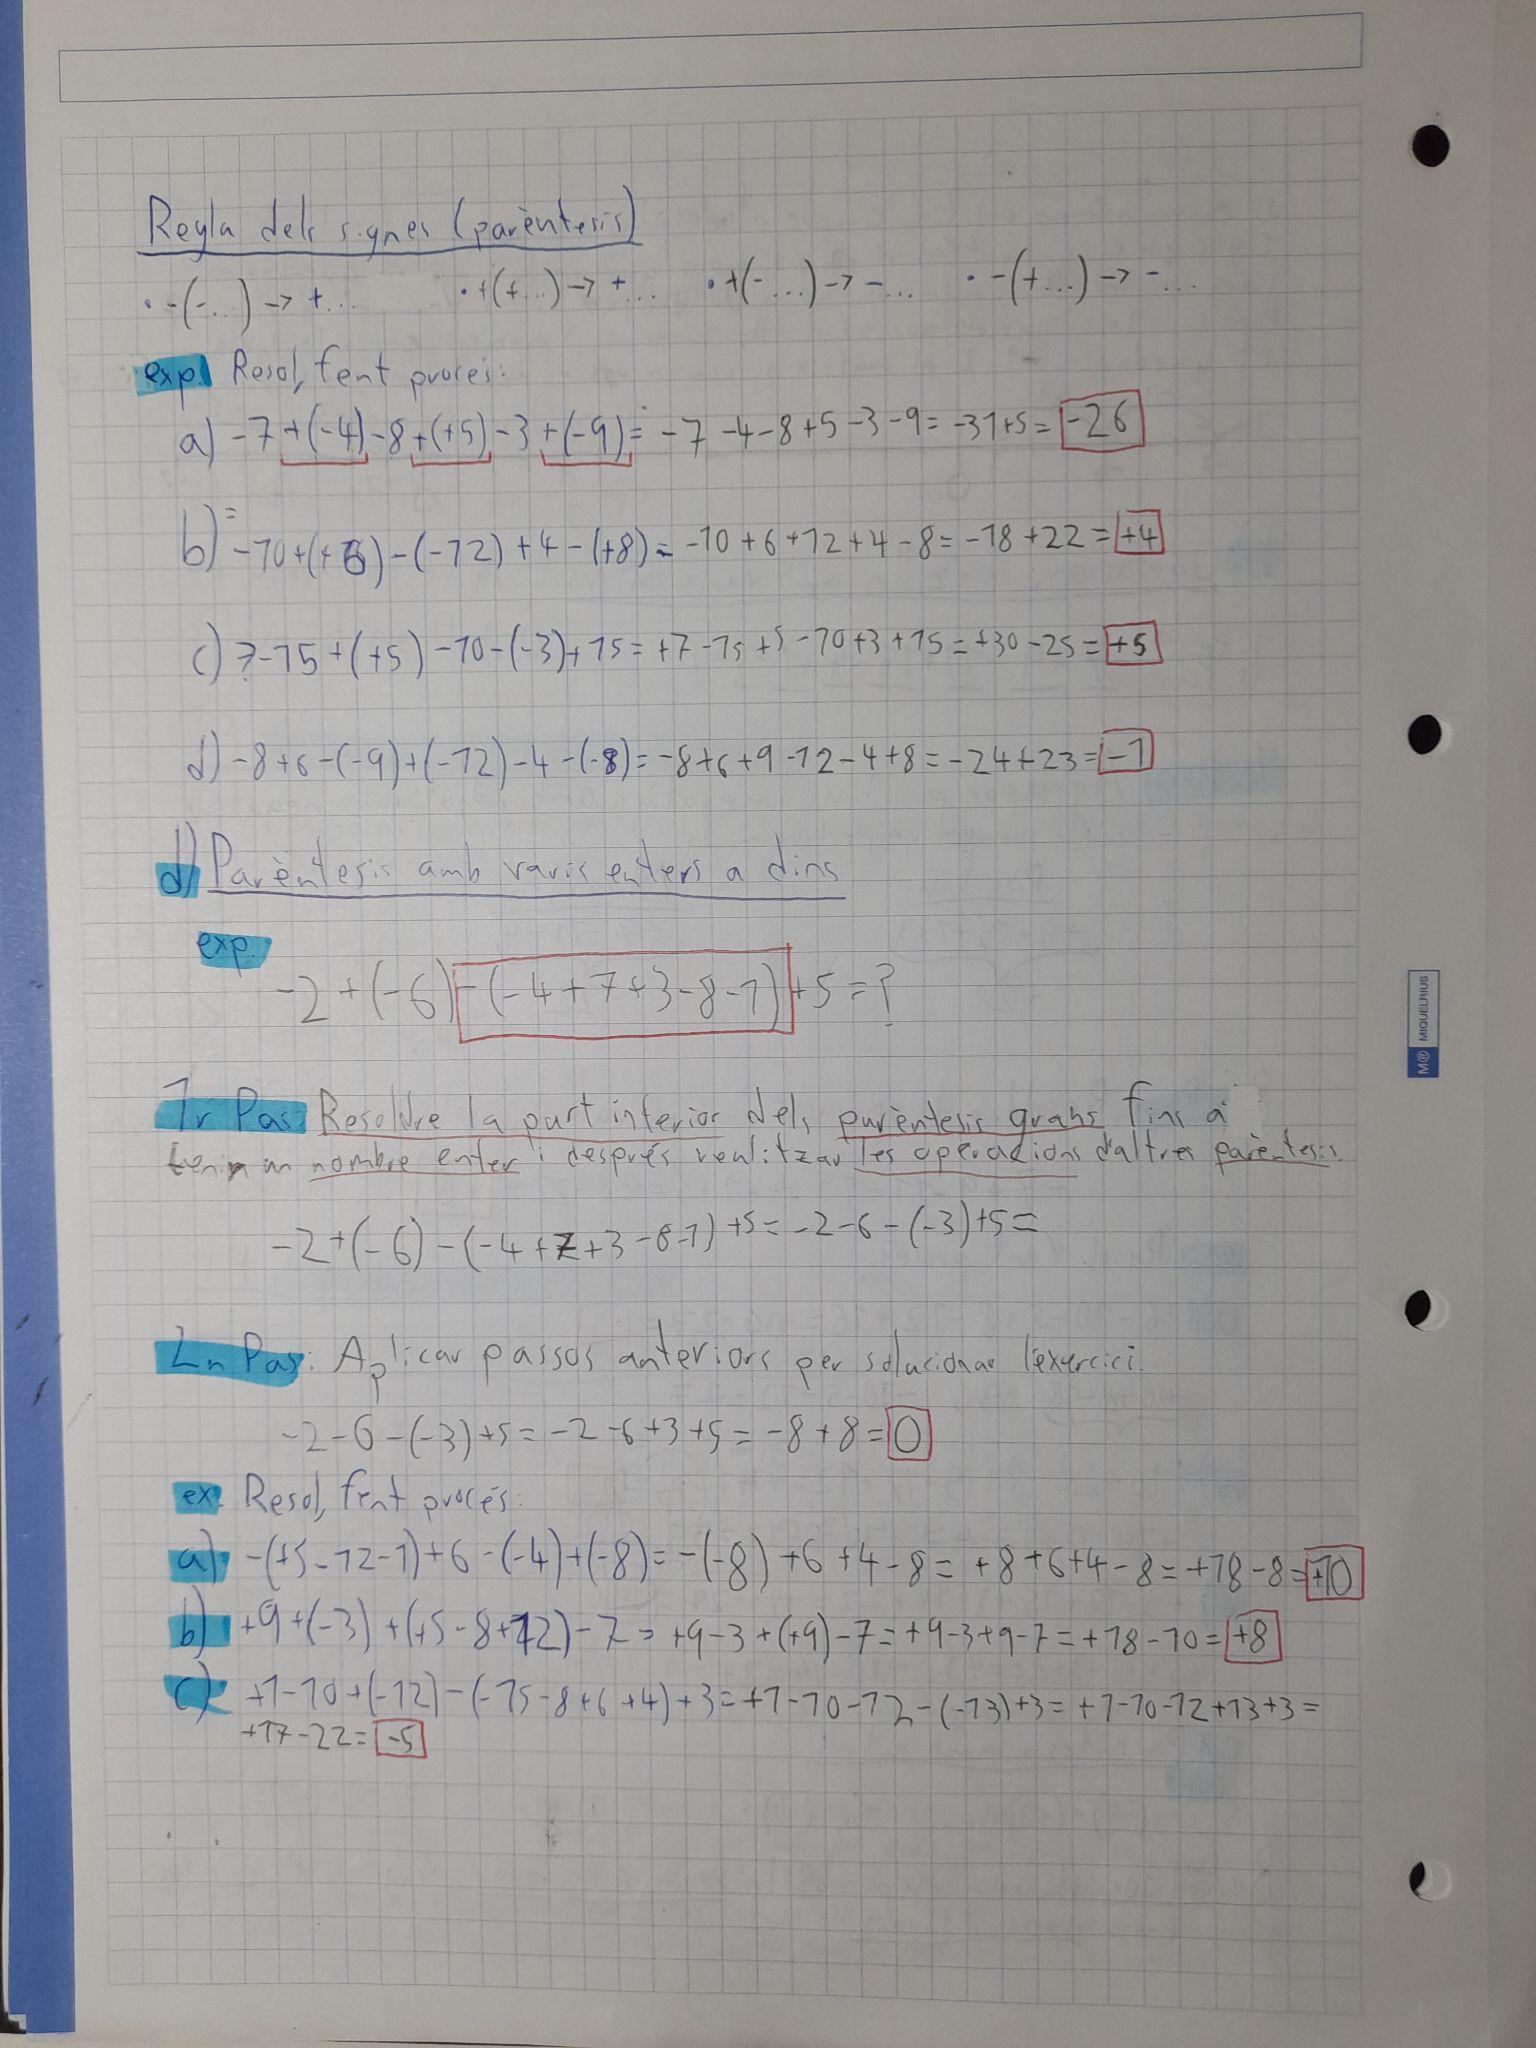 Regla dels signes (parèntesis)
• -(-...) → +... • +(+...) → +... • +(-...) → -... • -(+...) → -...
exp. Resol, fent procés:
a) -7+(-4)-8+(+5)-3+(-9)= -7-4-8+5-3-9= -31+5= -26
b) -10+(+6)-(-12)+4-(+8)= -10+6+12+4-8= -18+22= +4
c) 7-15+(+5)-10-(-3)+15= +7-15+5-10+3+15= +30-25= +5
d) -8+6-(-9)+(-12)-4-(-8)= -8+6+9-12-4+8= -24+23= -1
d) Parèntesis amb varis enters a dins
exp.
-2+(-6)-(-4+7+3-8-1)+5=?
1r Pas: Resoldre la part interior dels parèntesis grans fins a
tenir un nombre enter i després realitzar les operacions d'altres parèntesis.
-2+(-6)-(-4+7+3-8-1)+5= -2-6-(-3)+5=
2n Pas: Aplicar passos anteriors per solucionar l'exercici.
-2-6-(-3)+5= -2-6+3+5= -8+8= 0
ex. Resol, fent procés:
a) -(+5-12-1)+6-(-4)+(-8)= -(-8)+6+4-8= +8+6+4-8= +18-8= +10
b) +9+(-3)+(+5-8+12)-7= +9-3+(+9)-7= +9-3+9-7= +18-10= +8
c) +1-10+(-12)-(-15-8+6+4)+3= +1-10-12-(-13)+3= +1-10-12+13+3=
+17-22= -5
M® MIQUELRIUS